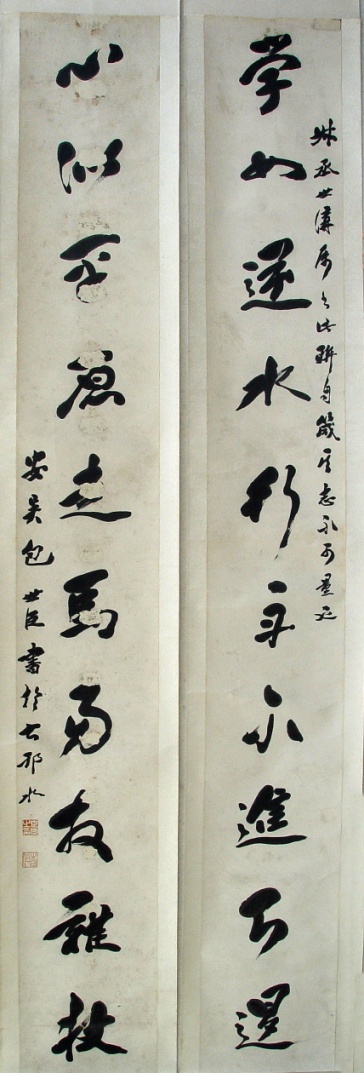 世講屬以此聯自箴其志不可量也
学如逆水行舟不進則退
心似平原走馬易放難收
安吳包世臣書於古邗水